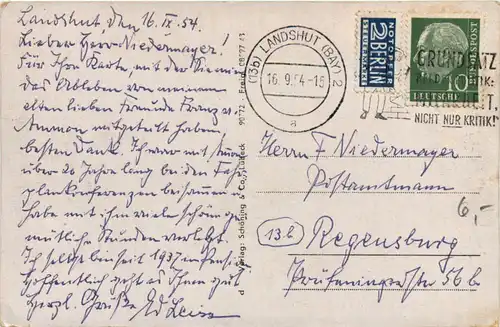 Landshut, den 16. IX. 54.
Lieber Herr Niedermayer!
Für Ihre Karte, mit der Sie mir
das Ableben von meinem
alten lieben Freunde Franz X.
Ammon mitgeteilt haben,
besten Dank. Ich war mit
über 20 Jahre lang bei den Fahr-
plankonferenzen beisammen u.
habe mit ihm viele schöne ge-
mütliche Stunden verlebt.
Ich selbst bin seit 1937 in Pension
Hoffentlich geht es Ihnen gut
Herzl. Grüße
d Verlag: Schöning & Co., Lübeck
(13b) LANDSHUT (BAY) 2
16.9.54-15
a
NOTOPFER
2 BERLIN
STEUERMARKE
DEUTSCHE BUNDESPOST
10
NICHT NUR KRITIK!
Herrn F Niedermayer
Postamtmann
6,-
(13b) Regensburg
Prüfeningerstr 56 b